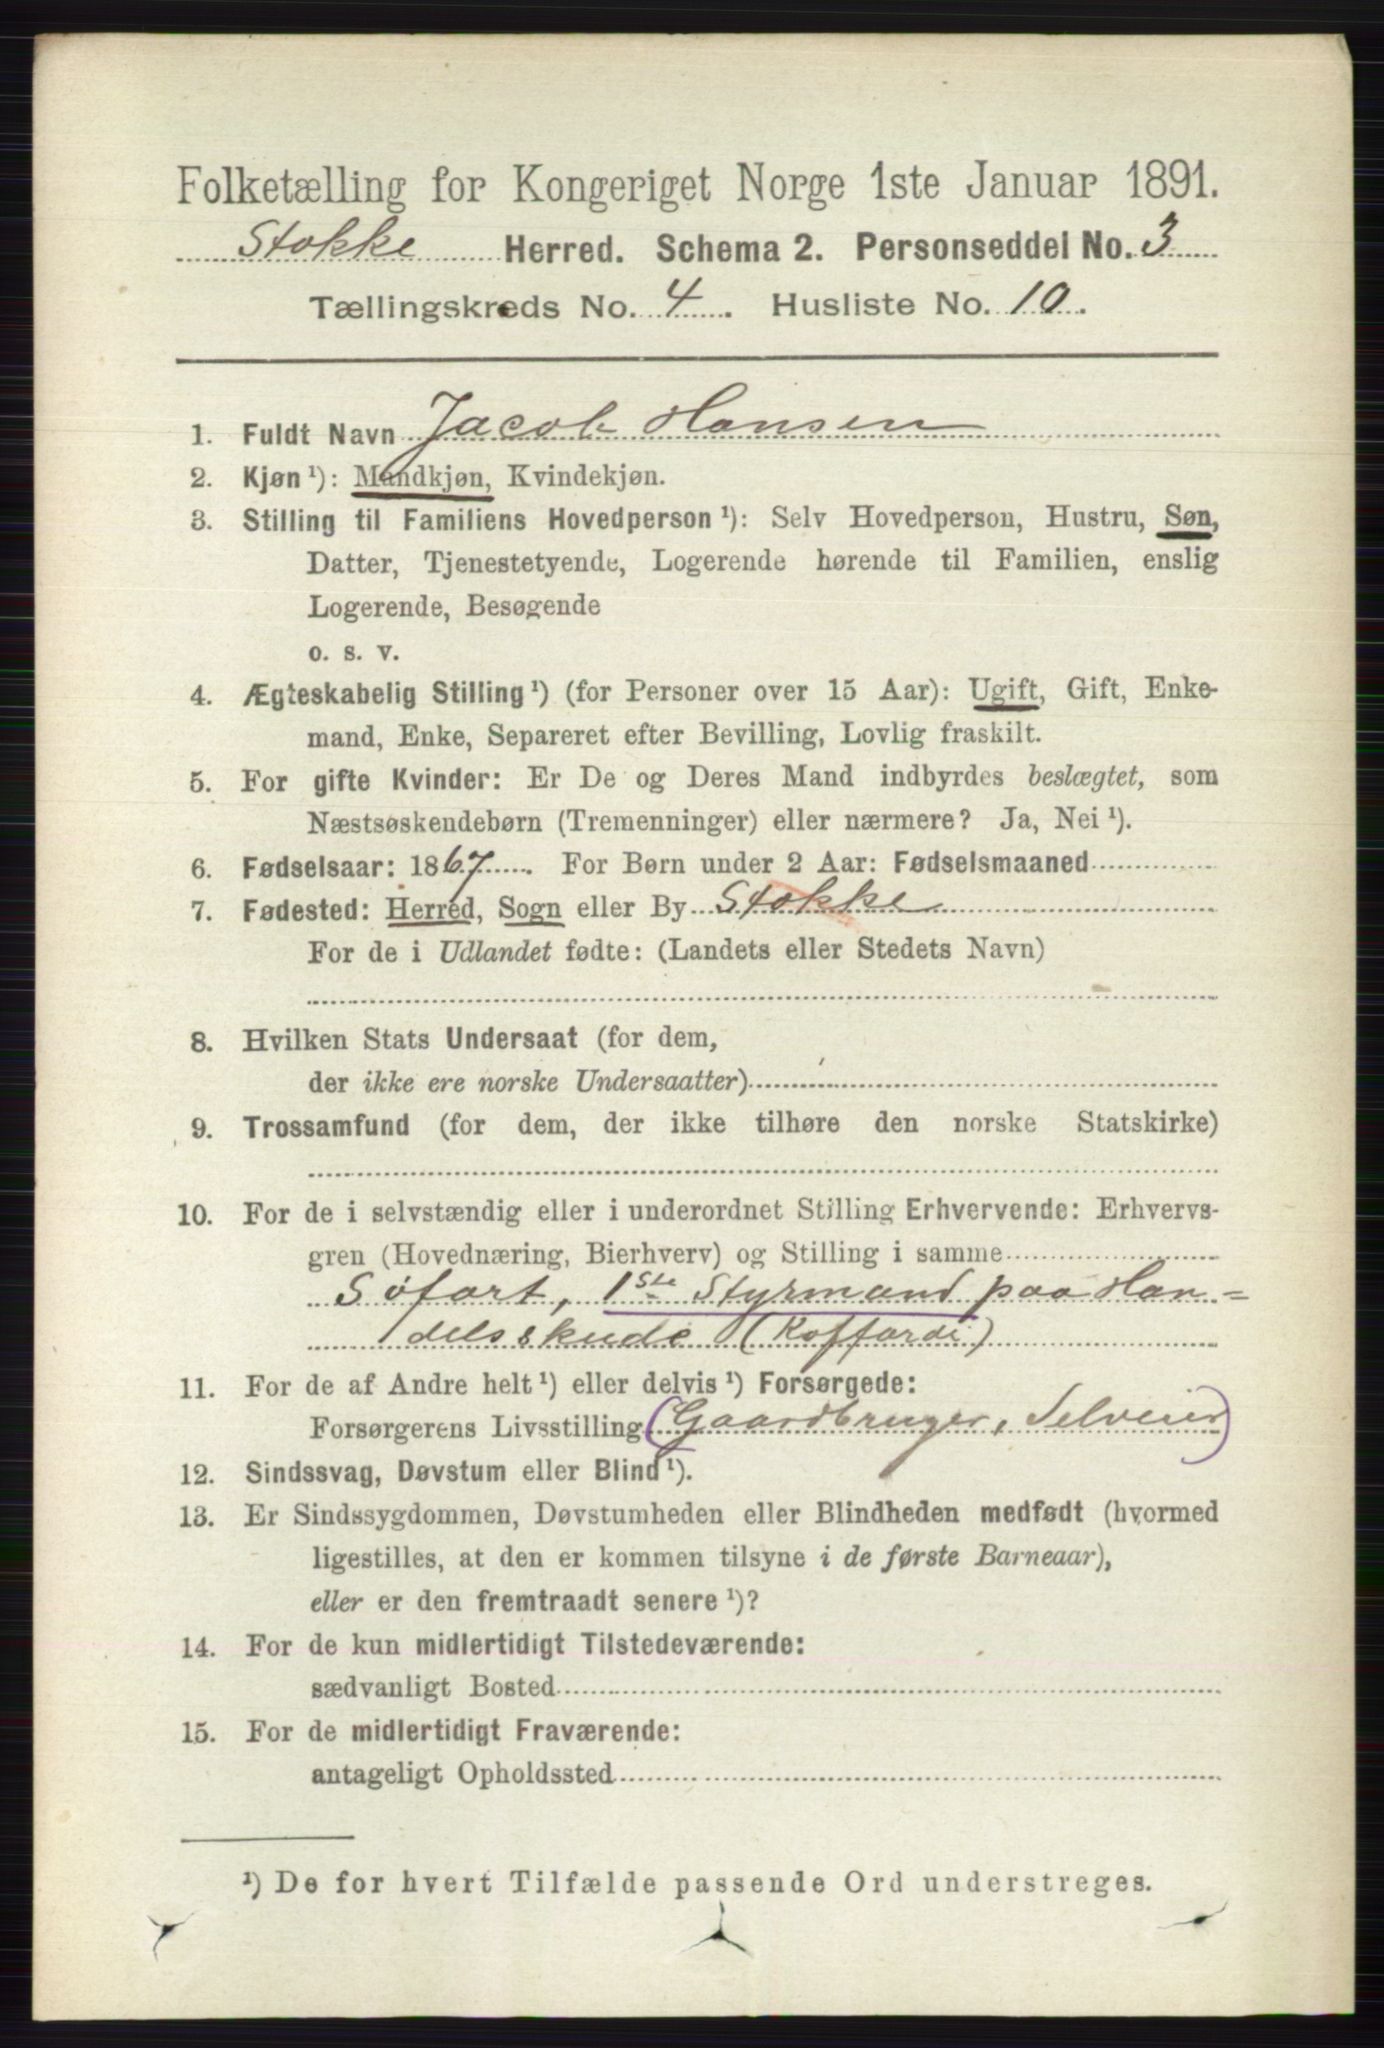 Folketælling for Kongeriget Norge 1ste Januar 1891.
Stokke Herred. Schema 2. Personseddel No. 3
Tællingskreds No. 4. Husliste No. 10.
1. Fuldt Navn Jacob Hansen
2. Kjøn ¹): Mandkjøn, Kvindekjøn.
3. Stilling til Familiens Hovedperson ¹): Selv Hovedperson, Hustru, Søn,
Datter, Tjenestetyende, Logerende hørende til Familien, enslig
Logerende, Besøgende
o. s. v.
4. Ægteskabelig Stilling ¹) (for Personer over 15 Aar): Ugift, Gift, Enke-
mand, Enke, Separeret efter Bevilling, Lovlig fraskilt.
5. For gifte Kvinder: Er De og Deres Mand indbyrdes beslægtet, som
Næstsøskendebørn (Tremenninger) eller nærmere? Ja, Nei ¹).
6. Fødselsaar: 1867. For Børn under 2 Aar: Fødselsmaaned
7. Fødested: Herred, Sogn eller By Stokke
For de i Udlandet fødte: (Landets eller Stedets Navn)
8. Hvilken Stats Undersaat (for dem,
der ikke ere norske Undersaatter)
9. Trossamfund (for dem, der ikke tilhøre den norske Statskirke)
10. For de i selvstændig eller i underordnet Stilling Erhvervende: Erhvervs-
gren (Hovednæring, Bierhverv) og Stilling i samme
Søfart, 1ste Styrmand paa Han=
delsskude (Koffardi)
11. For de af Andre helt ¹) eller delvis ¹) Forsørgede:
Forsørgerens Livsstilling (Gaardbruger, Selveier)
12. Sindssvag, Døvstum eller Blind ¹).
13. Er Sindssygdommen, Døvstumheden eller Blindheden medfødt (hvormed
ligestilles, at den er kommen tilsyne i de første Barneaar),
eller er den fremtraadt senere ¹)?
14. For de kun midlertidigt Tilstedeværende:
sædvanligt Bosted
15. For de midlertidigt Fraværende:
antageligt Opholdssted
¹) De for hvert Tilfælde passende Ord understreges.